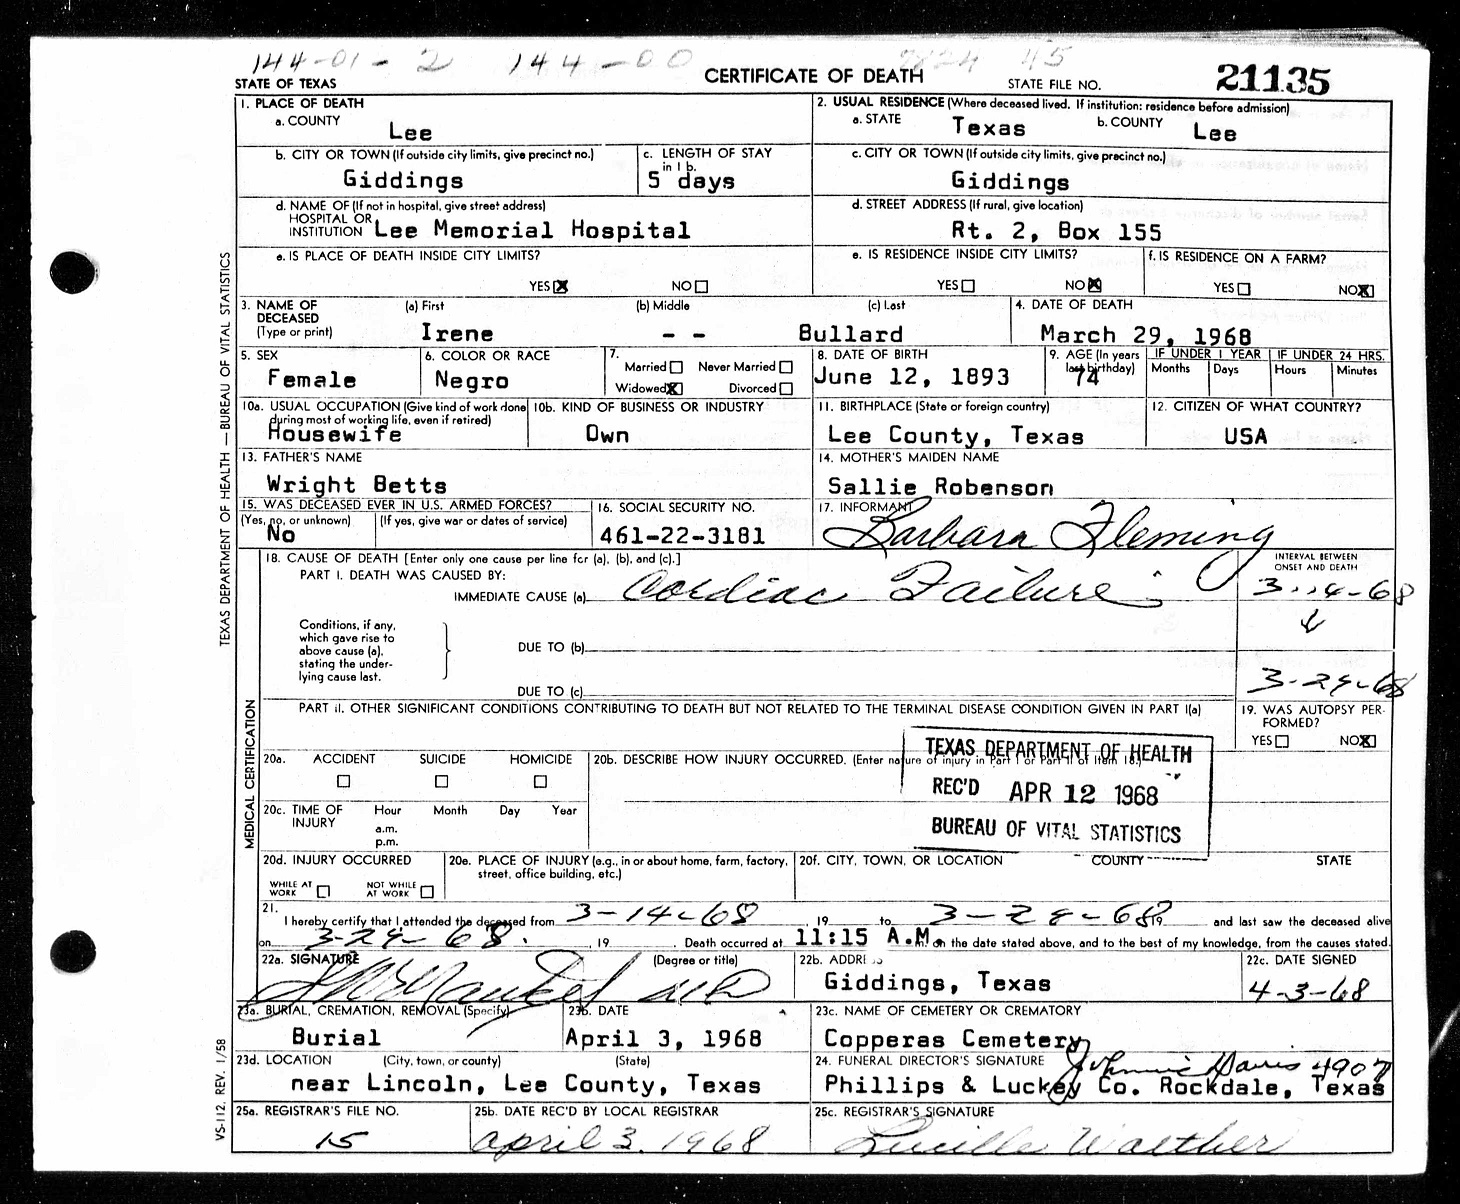 144-01-2 144-00 45
STATE OF TEXAS CERTIFICATE OF DEATH STATE FILE NO. 21135
1. PLACE OF DEATH
a. COUNTY Lee
2. USUAL RESIDENCE (Where deceased lived. If institution: residence before admission)
a. STATE Texas b. COUNTY Lee
b. CITY OR TOWN (If outside city limits, give precinct no.) Giddings
c. LENGTH OF STAY in 1 b. 5 days
c. CITY OR TOWN (If outside city limits, give precinct no.) Giddings
d. NAME OF (If not in hospital, give street address)
HOSPITAL OR
INSTITUTION Lee Memorial Hospital
d. STREET ADDRESS (If rural, give location)
Rt. 2, Box 155
e. IS PLACE OF DEATH INSIDE CITY LIMITS?
YES ☒ NO ☐
e. IS RESIDENCE INSIDE CITY LIMITS?
YES ☐ NO ☒
f. IS RESIDENCE ON A FARM?
YES ☐ NO ☒
3. NAME OF DECEASED (Type or print)
(a) First Irene (b) Middle -- (c) Last Bullard
4. DATE OF DEATH
March 29, 1968
5. SEX Female
6. COLOR OR RACE Negro
7. Married ☐ Never Married ☐
Widowed ☒ Divorced ☐
8. DATE OF BIRTH June 12, 1893
9. AGE (In years last birthday) 74
IF UNDER 1 YEAR Months Days
IF UNDER 24 HRS. Hours Minutes
10a. USUAL OCCUPATION (Give kind of work done during most of working life, even if retired) Housewife
10b. KIND OF BUSINESS OR INDUSTRY Own
11. BIRTHPLACE (State or foreign country) Lee County, Texas
12. CITIZEN OF WHAT COUNTRY? USA
13. FATHER'S NAME Wright Betts
14. MOTHER'S MAIDEN NAME Sallie Robenson
15. WAS DECEASED EVER IN U.S. ARMED FORCES?
(Yes, no, or unknown) No (If yes, give war or dates of service)
16. SOCIAL SECURITY NO. 461-22-3181
17. INFORMANT Barbara Fleming
18. CAUSE OF DEATH [Enter only one cause per line for (a), (b), and (c).]
INTERVAL BETWEEN ONSET AND DEATH
PART I. DEATH WAS CAUSED BY:
IMMEDIATE CAUSE (a) Cordiac Failure 3-14-68
Conditions, if any, which gave rise to above cause (a), stating the underlying cause last.
DUE TO (b)
DUE TO (c) 3-29-68
PART II. OTHER SIGNIFICANT CONDITIONS CONTRIBUTING TO DEATH BUT NOT RELATED TO THE TERMINAL DISEASE CONDITION GIVEN IN PART I(a)
19. WAS AUTOPSY PERFORMED?
YES ☐ NO ☒
20a. ACCIDENT ☐ SUICIDE ☐ HOMICIDE ☐
20b. DESCRIBE HOW INJURY OCCURRED. (Enter nature of injury in Part I or Part II of Item 18.)
TEXAS DEPARTMENT OF HEALTH
REC'D APR 12 1968
BUREAU OF VITAL STATISTICS
20c. TIME OF INJURY Hour Month Day Year
a.m.
p.m.
20d. INJURY OCCURRED
WHILE AT WORK ☐ NOT WHILE AT WORK ☐
20e. PLACE OF INJURY (e.g., in or about home, farm, factory, street, office building, etc.)
20f. CITY, TOWN, OR LOCATION COUNTY STATE
21. I hereby certify that I attended the deceased from 3-14-68, 19 to 3-29-68 19 and last saw the deceased alive
on 3-29-68, 19 . Death occurred at 11:15 A.M. on the date stated above, and to the best of my knowledge, from the causes stated.
22a. SIGNATURE (Degree or title) MD
22b. ADDRESS Giddings, Texas
22c. DATE SIGNED 4-3-68
23a. BURIAL, CREMATION, REMOVAL (Specify) Burial
23b. DATE April 3, 1968
23c. NAME OF CEMETERY OR CREMATORY Copperas Cemetery
23d. LOCATION (City, town, or county) (State)
near Lincoln, Lee County, Texas
24. FUNERAL DIRECTOR'S SIGNATURE Johnnie Davis 4907
Phillips & Luckey Co. Rockdale, Texas
25a. REGISTRAR'S FILE NO. 15
25b. DATE REC'D BY LOCAL REGISTRAR April 3, 1968
25c. REGISTRAR'S SIGNATURE Lucille Walther
TEXAS DEPARTMENT OF HEALTH — BUREAU OF VITAL STATISTICS
MEDICAL CERTIFICATION
VS-112. REV. 1/58